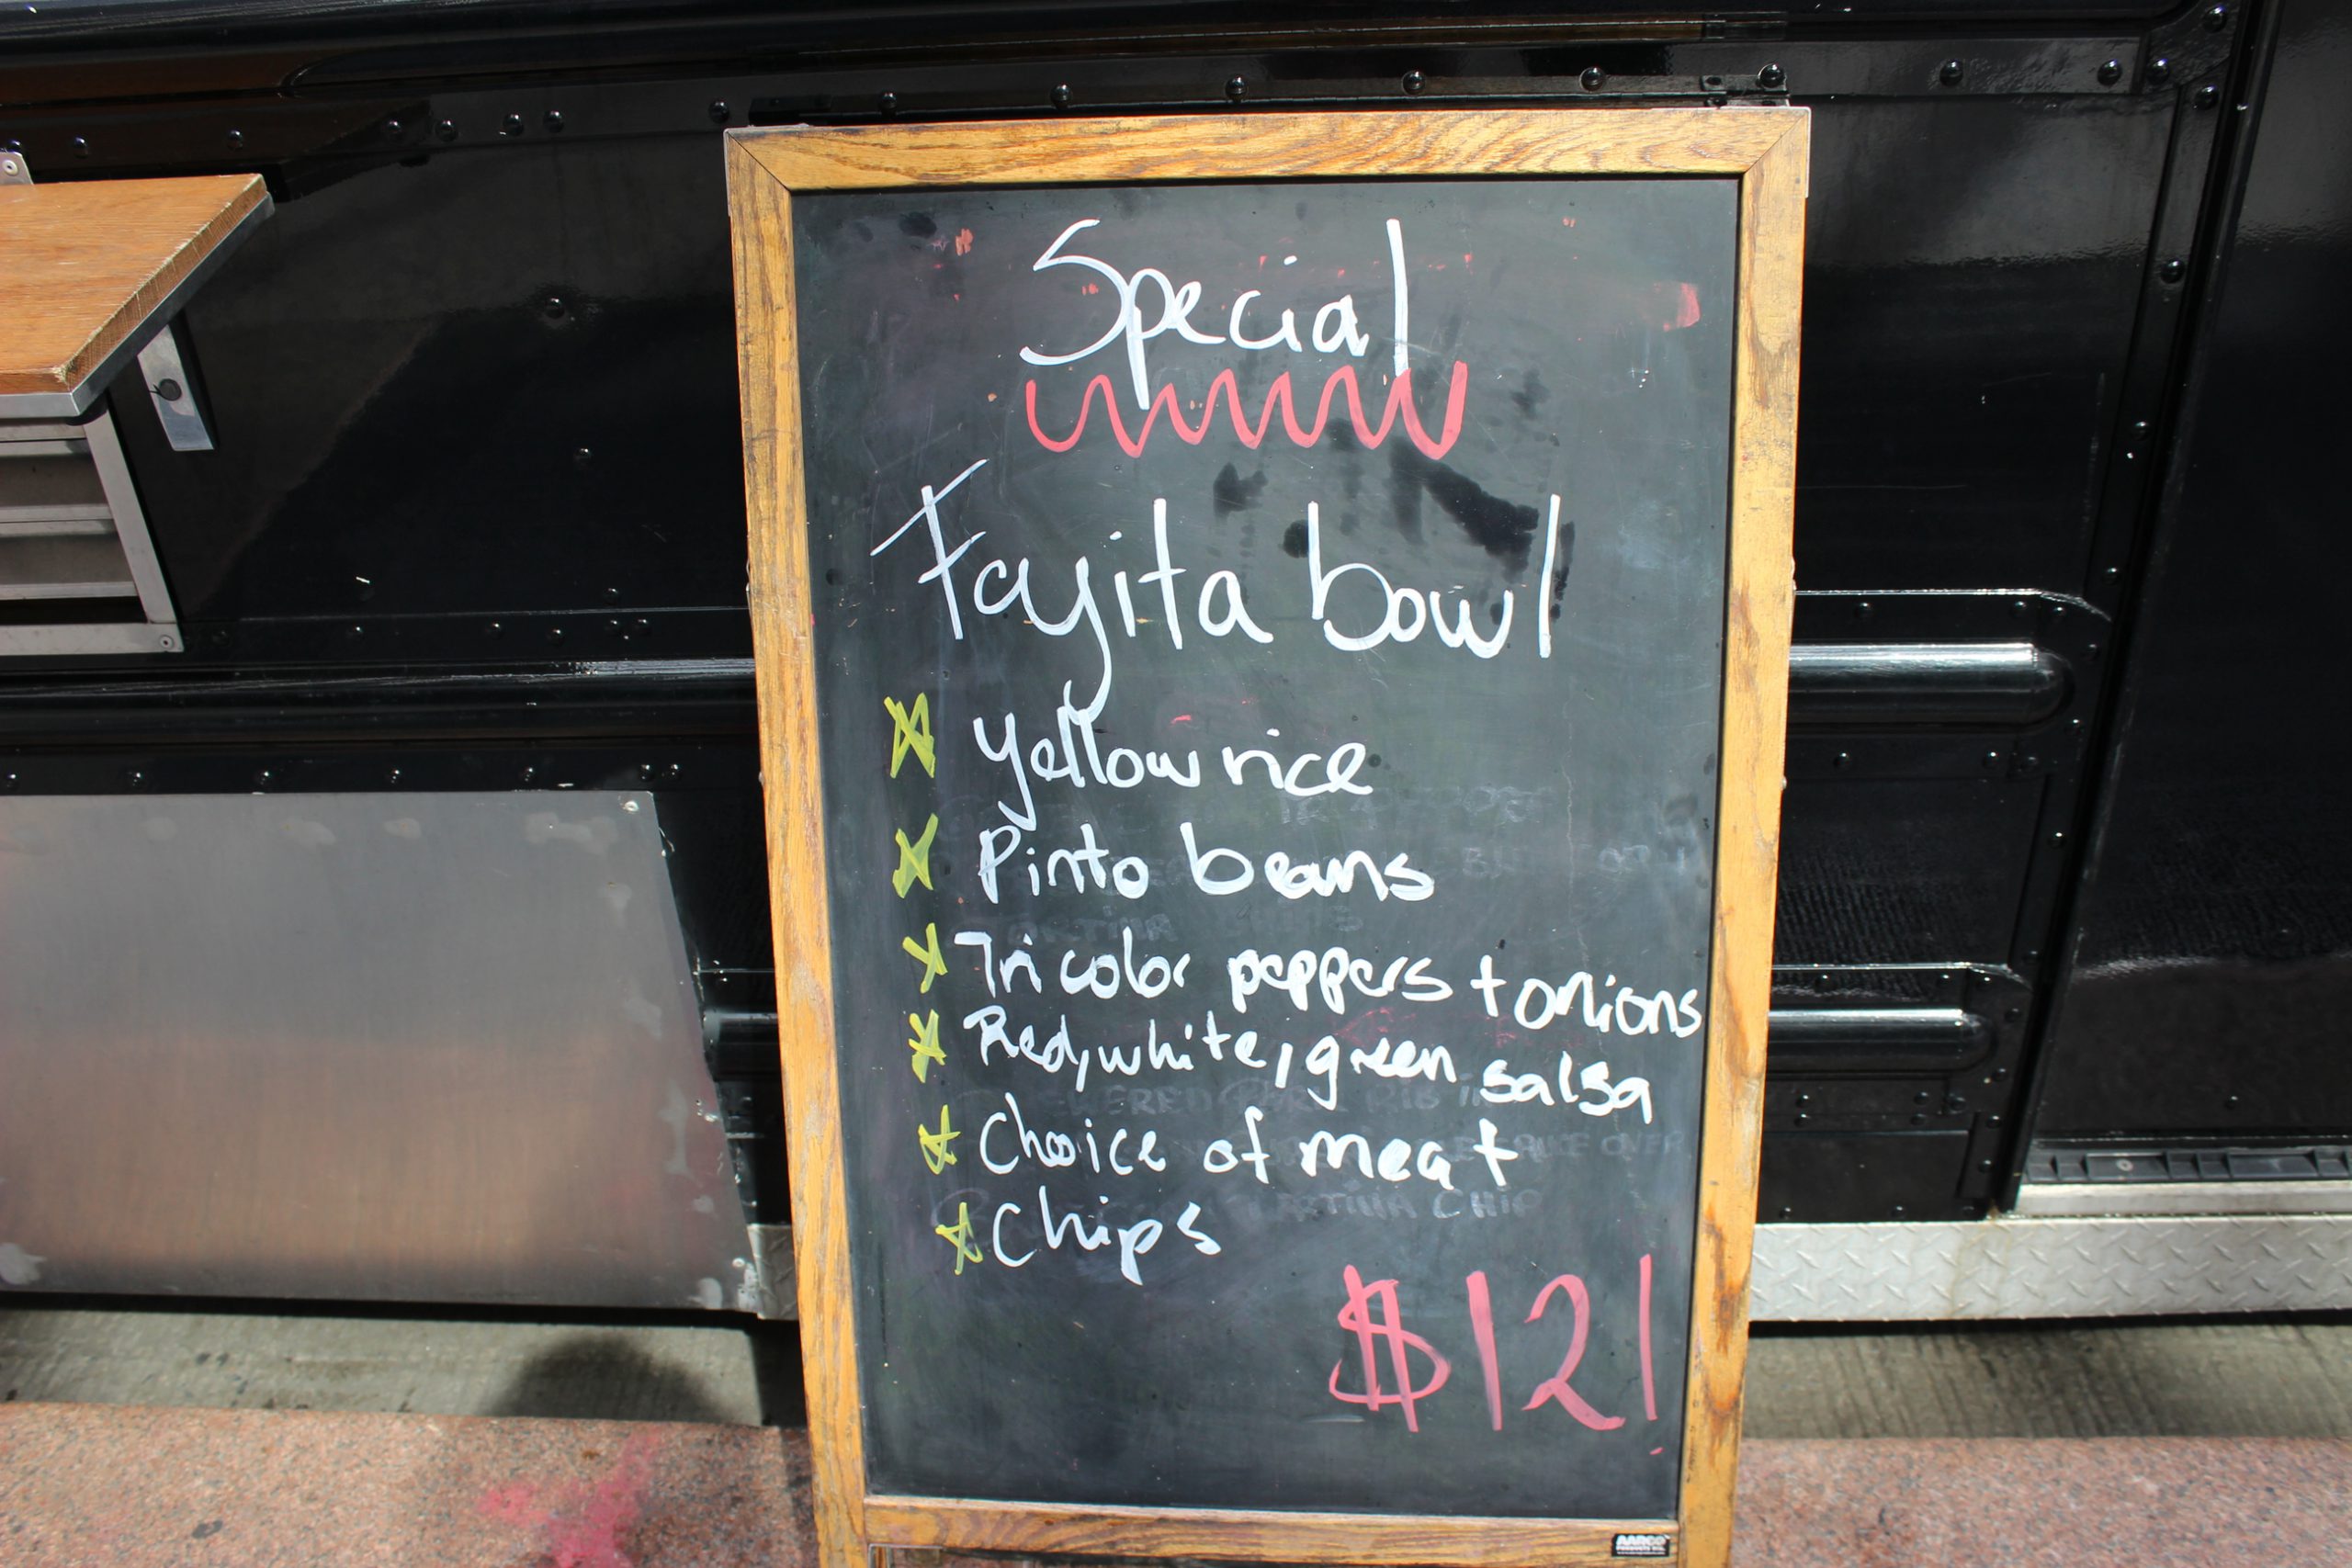 Special
Fajita bowl
Yellow rice
Pinto beans
Tri color peppers + onions
Red, white, green salsa
Choice of meat
Chips
$12!
AARCO